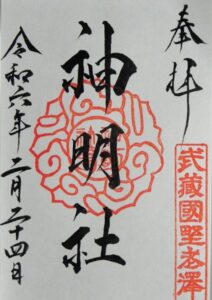 奉拝
武蔵國野老澤
神明社
令和六年二月二十四日